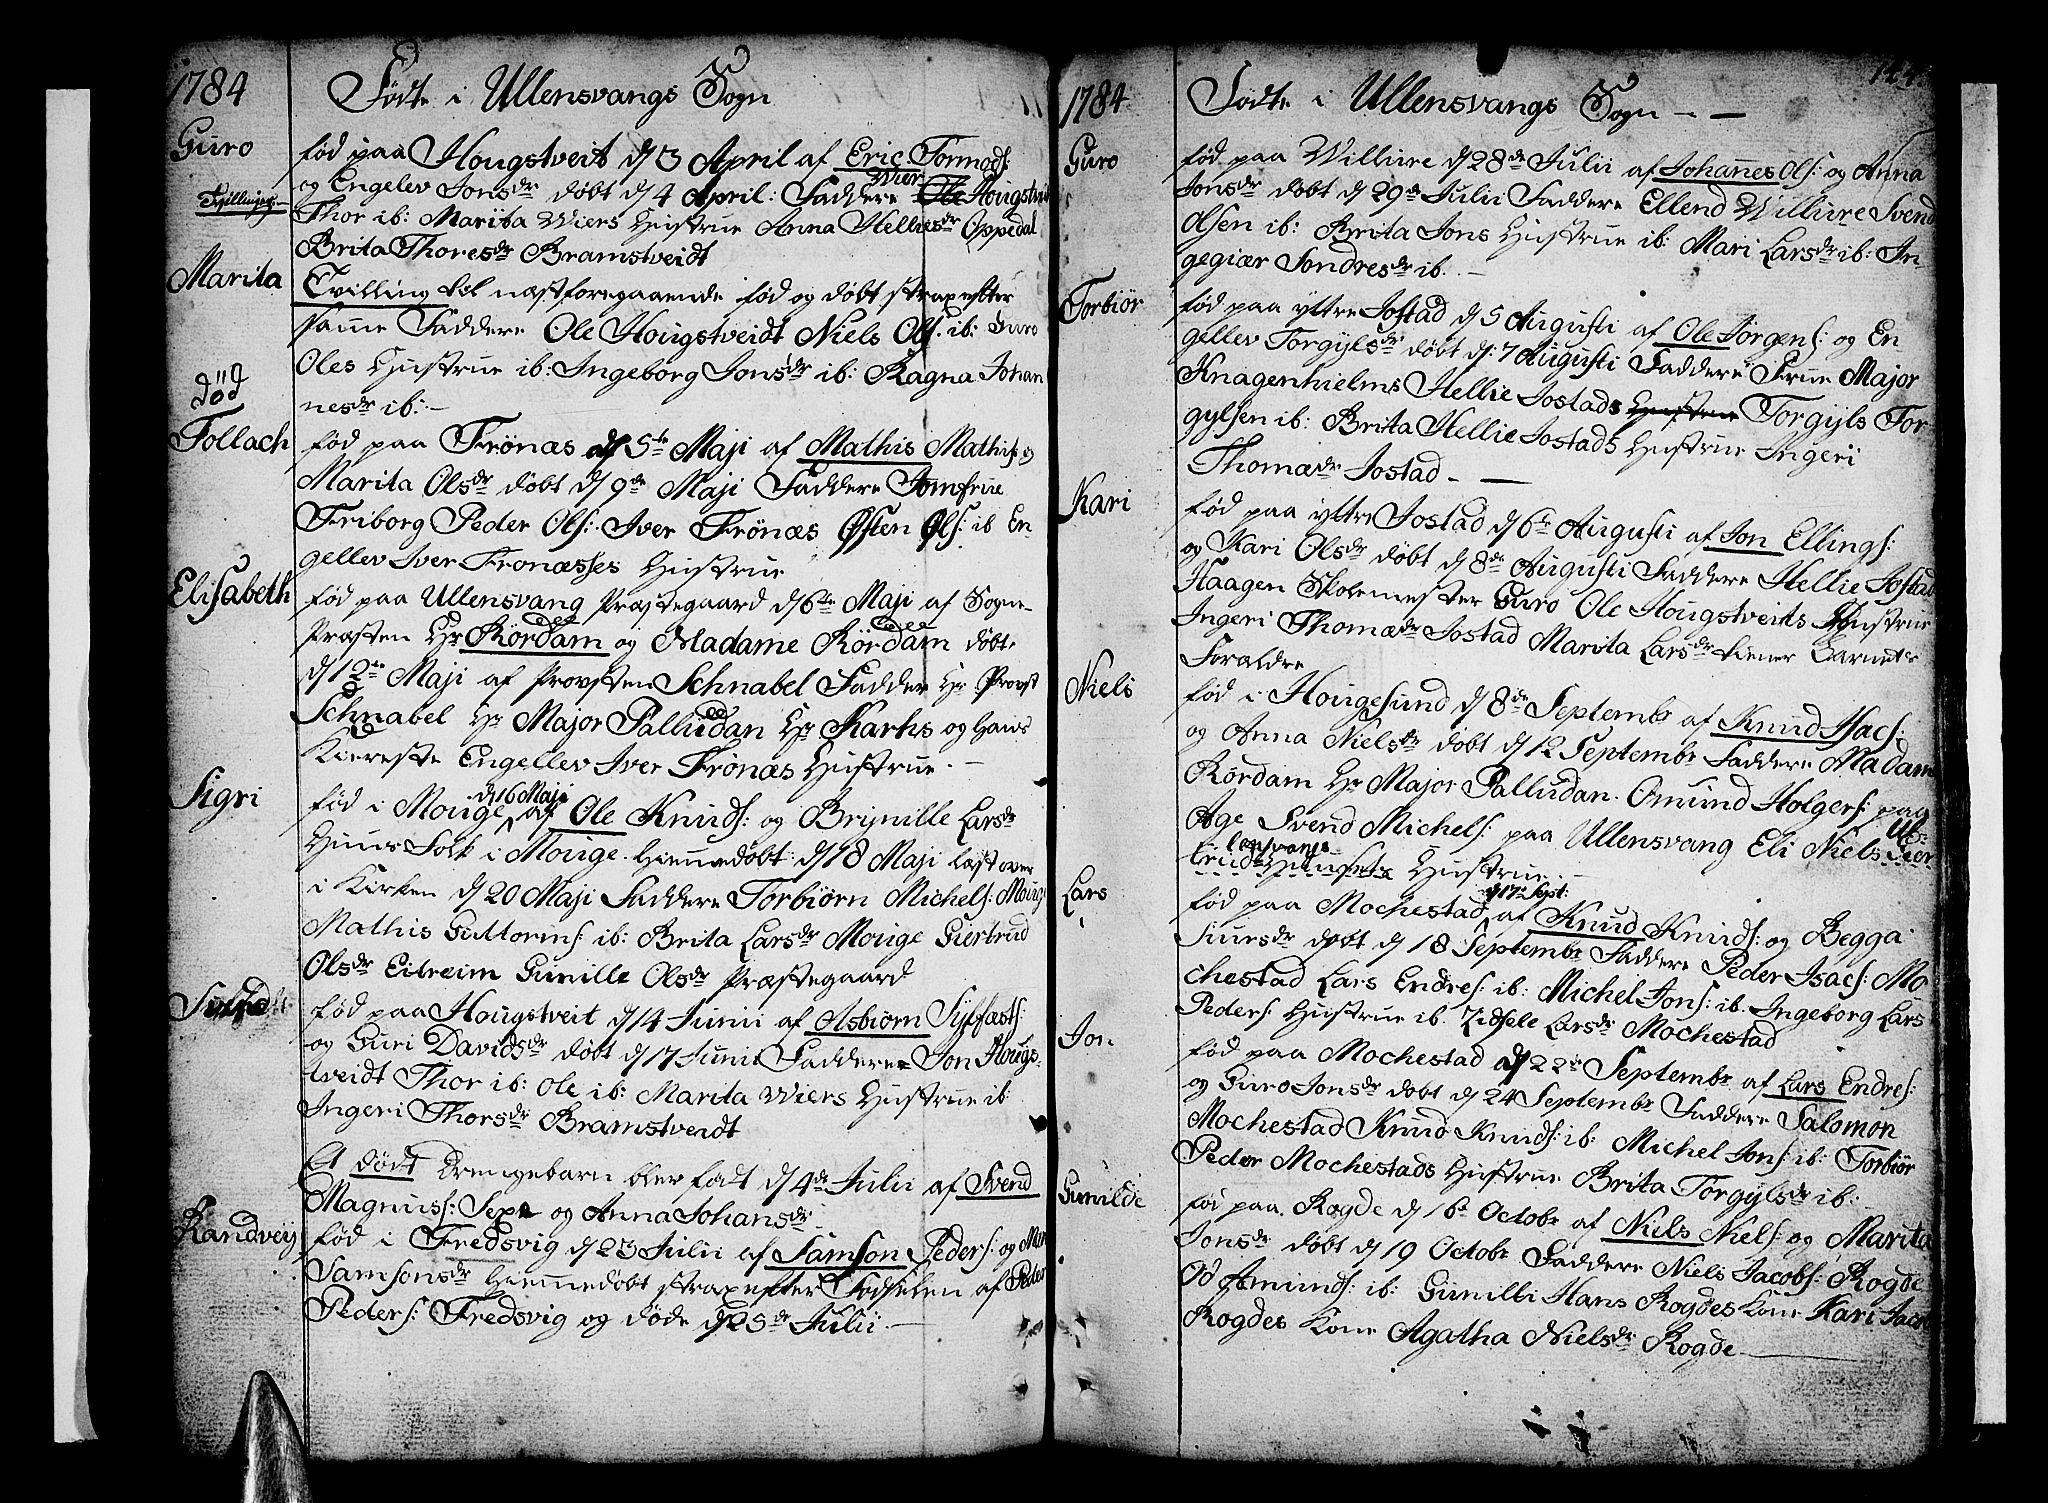 1784 Fødte i Ullensvangs Sogn
Guro fød paa Hougstveit d 3 April af Eric Tormods:
og Engelev Jonsdr døbt d 4 April: Faddere Wier Hougstveit
Thor ib: Marita Wiers Hustrue Anna Helliesdr Oppedal
Brita Thoresdr Bramstveidt
Marita Tvilling til næstforegaaende fød og døbt strax efter
samme Faddere Ole Hougstveidt Niels Ols: ib: Guro
Oles Hustrue ib: Ingeborg Jonsdr ib: Ragna Johan
død nesdr ib:
Tollach fød paa Frönæs d 5te Maji af Mathis Mathis: og
Marita Olsdr døbt d 9de Maji Faddere Jomfrue
Friborg Peder Ols: Iver Frönæs Østen Ols: ib En-
gellev Iver Fronæsses Hustrue
Elisabeth fød paa Ullensvang Præstegaard d 6te Maji af Sogne-
Præsten Hr Rördam og Madame Rördam døbt
d 12te Maji af Provsten Schnabel Fadder Hr Provst
Schnabel Hr Major Palludan Hr Karhs og hans
Kiereste Engellev Iver Frönæs Hustrue.
Sigri fød i Mouge d 16 Maji af Ole Knuds: og Brynille Larsdr
Huus Folk i Mouge. hiemedøbt d 18 Maji læst over
i Kirken d 20 Maji Faddere Torbiörn Michels: Mouge
Mathis Guttorms: ib: Brita Larsdr Mouge Giertrud
Olsdr Eitreim Gunille Olsdr Præstegaard
fød paa Hougstveit d 14 Junii af Asbiörn Sylfæsts:
og Guri Davidsdr døbt d 17 Junii Faddere Jon Hougs-
tveidt Thor ib: Ole ib: Marita Wiers Hustrue ib:
Ingeri Thorsdr Bramstveidt
Et dødt Drengebarn blev født d 4de Julii af Svend
Magnus: Sexe og Anna Johansdr
Randvey fød i Fredsvig d 23 Julii af Samson Peders: og
Samsonsdr hiemmedøbt strax efter Fødselen af Peder
Peders: Fredsvig og døde d 25de Julii.
1784 Fødte i Ullensvangs Sogn
Guro fød paa Williure d 28de Julii af Johannes Ols: og Anna
Jonsdr døbt d 29de Julii Faddere Ellend Williure Svend
Olsen ib: Brita Jons Hustrue ib: Mari Larsdr ib: In-
gegiær Sondresdr ib.
Torbiör fød paa yttre Jostad d 5 Augusti af Ole Jörgens: og En-
gellev Torgylsdr døbt d: 7 Augusti Faddere Frue Major
Knagenhielms Hellie Jostads Hustrue Torgyls Tor-
gylsen ib: Brita Hellie Jostads Hustrue Ingeri
Thomædr Jostad
Kari fød paa yttre Jostad d 6te Augusti af Jon Ellings:
og Kari Olsdr døbt d 8de Augusti Faddere Hellie Jostad
Haagen Skolemester Guro Ole Hougstveits Hustrue
Ingeri Thomædr Jostad Marita Larsdr tiener Barnets
Forældre
Niels fød i Hougesund d 8de Septembr af Knud Isacs:
og Anna Nielsdr døbt d 12 Septembr Faddere Madam
Rördam Hr Major Palludan. Omund Holgers: paa
Age Svend Michels: paa Ullensvang Eli Niels
Hustrue.
Lars fød paa Mochestad d 17 Sept: af Knud Knuds: og Begga
Siursdr døbt d 18 Septembr Faddere Peder Isacs: Mo-
chestad Lars Endres ib: Michel Jons: ib. Ingeborg Lars
Peders: Hustrue ib. Zidsele Larsdr Mochestad
Jon fød paa Mochestad d 22de Septembr af Lars Endres:
og Guro Jonsdr døbt d 24 Septembr Faddere Salomon
Mochestad Knud Knuds: ib: Michel Jons: ib: Torbiör
Peder Mochestads Hustrue Brita Torgylsdr ib:
Gunilde fød paa Rogde d 16 Octobr af Niels Niels: og Marita
Jonsdr døbt d 19 Octobr Faddere Niels Jacobs: Rogde
Od Amunds: ib: Gunilli Hans Rogdes Kone Kari Jacob
Rogdes Kone Agatha Nielsdr Rogde